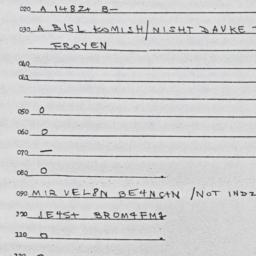 020 A 1482+ B—
030 A BISL KOMISH/NISHT DAVKE -
FROYEN
040
041
050 0
060 0
070 —
080 0
090 MIR VEL8N BE4NG+N /NOT INDI
100 1E4S+ BROM4FM1
110 0